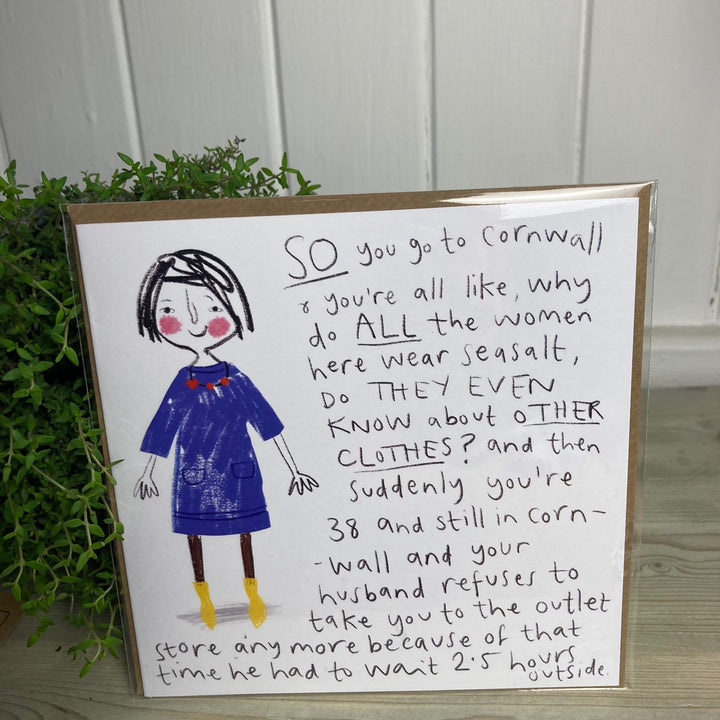 SO you go to cornwall
& you're all like, why
do ALL the women
here wear seasalt,
DO THEY EVEN
KNOW about OTHER
CLOTHES? and then
suddenly you're
38 and still in corn-
-wall and your
husband refuses to
take you to the outlet
store any more because of that
time he had to wait 2.5 hours
outside.